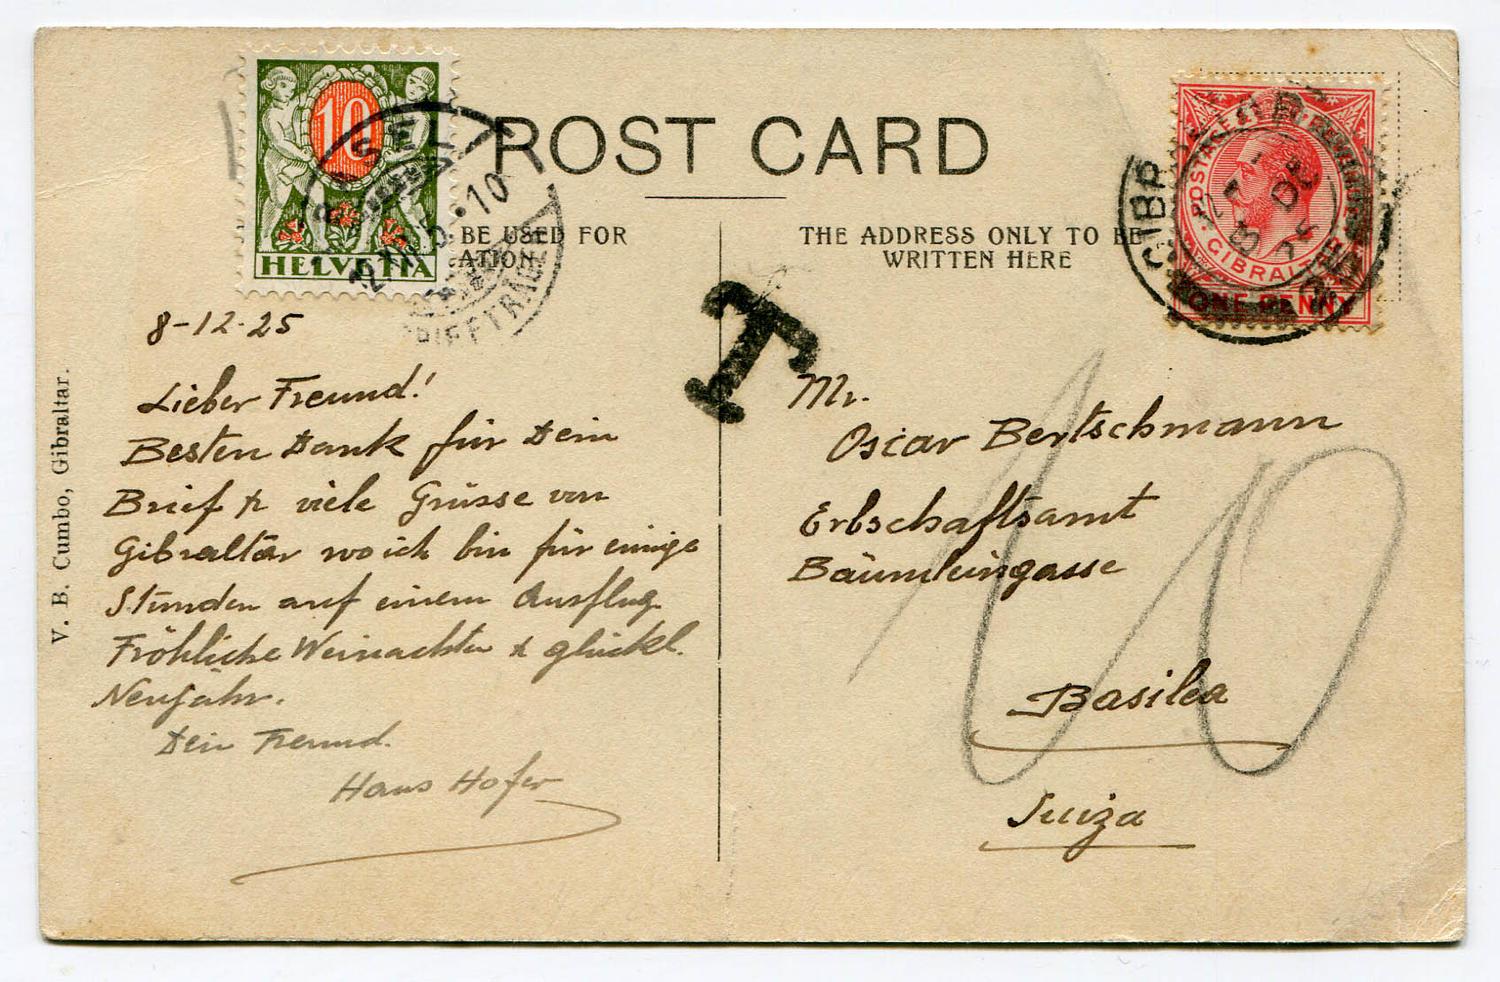 10
HELVETIA
POST CARD
BE USED FOR
THE ADDRESS ONLY TO BE
WRITTEN HERE
POSTAGE &
GIBRALTAR
ONE PENNY
T
8-12-25
Lieber Freund!
Besten Dank für Dein
Brief & viele Grüsse von
Gibraltar wo ich bin für einige
Stunden auf einem Ausflug.
Fröhliche Weinachten & glückl.
Neujahr.
Dein Freund.
Hans Hofer
V. B. Cumbo, Gibraltar.
Mr.
Oscar Bertschmann
Erbschaftsamt
Bäumleingasse
Basilea
Suiza
10